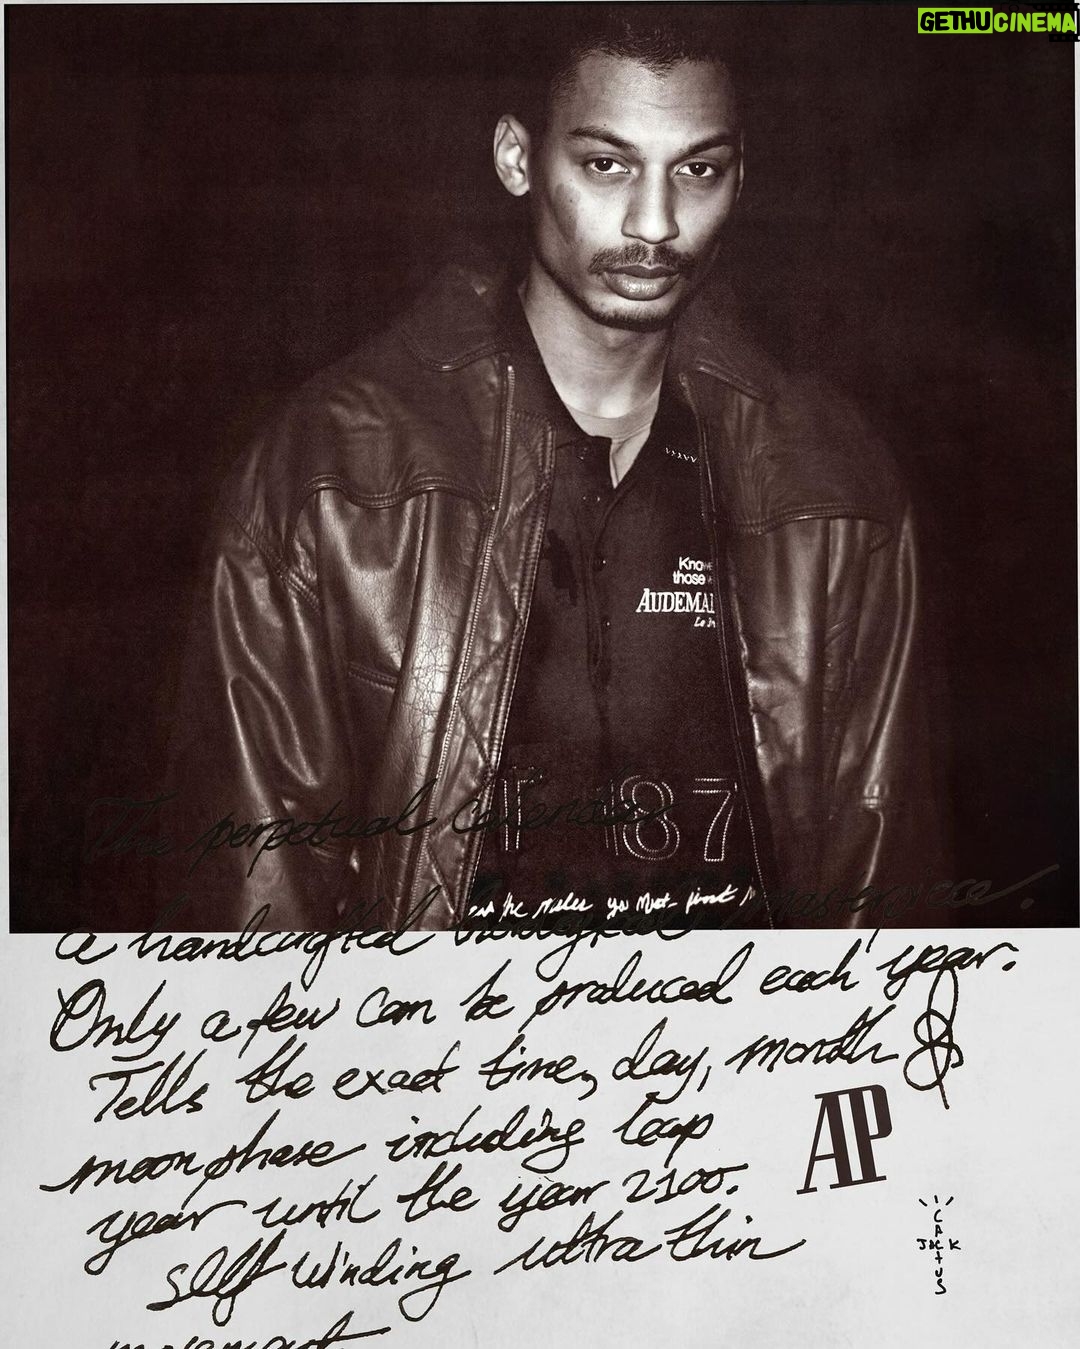 GETHUCINEMA
Kno
those
AUDEMA
187
The perpetual calendar
you Must first
a handcrafted masterpiece.
Only a few can be produced each year.
Tells the exact time, day, month &
moonphase including leap
year until the year 2100.
self winding ultra thin
movement.
AP
CACTUS
JACK